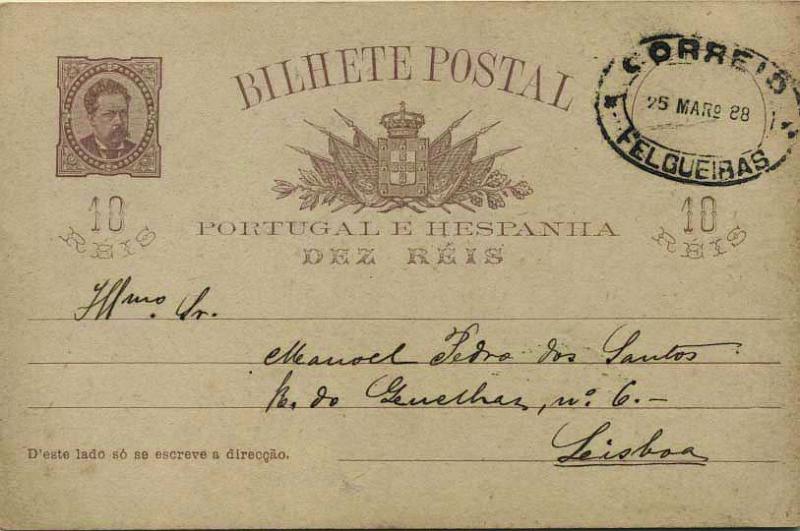 BILHETE POSTAL
CORREIO
25 MARº 88
FELGUEIRAS
10 RÉIS
10 RÉIS
PORTUGAL E HESPANHA
DEZ RÉIS
Illmo. Sr.
Manoel Pedro dos Santos
R. do nº 6.-
Lisboa
D'este lado só se escreve a direcção.